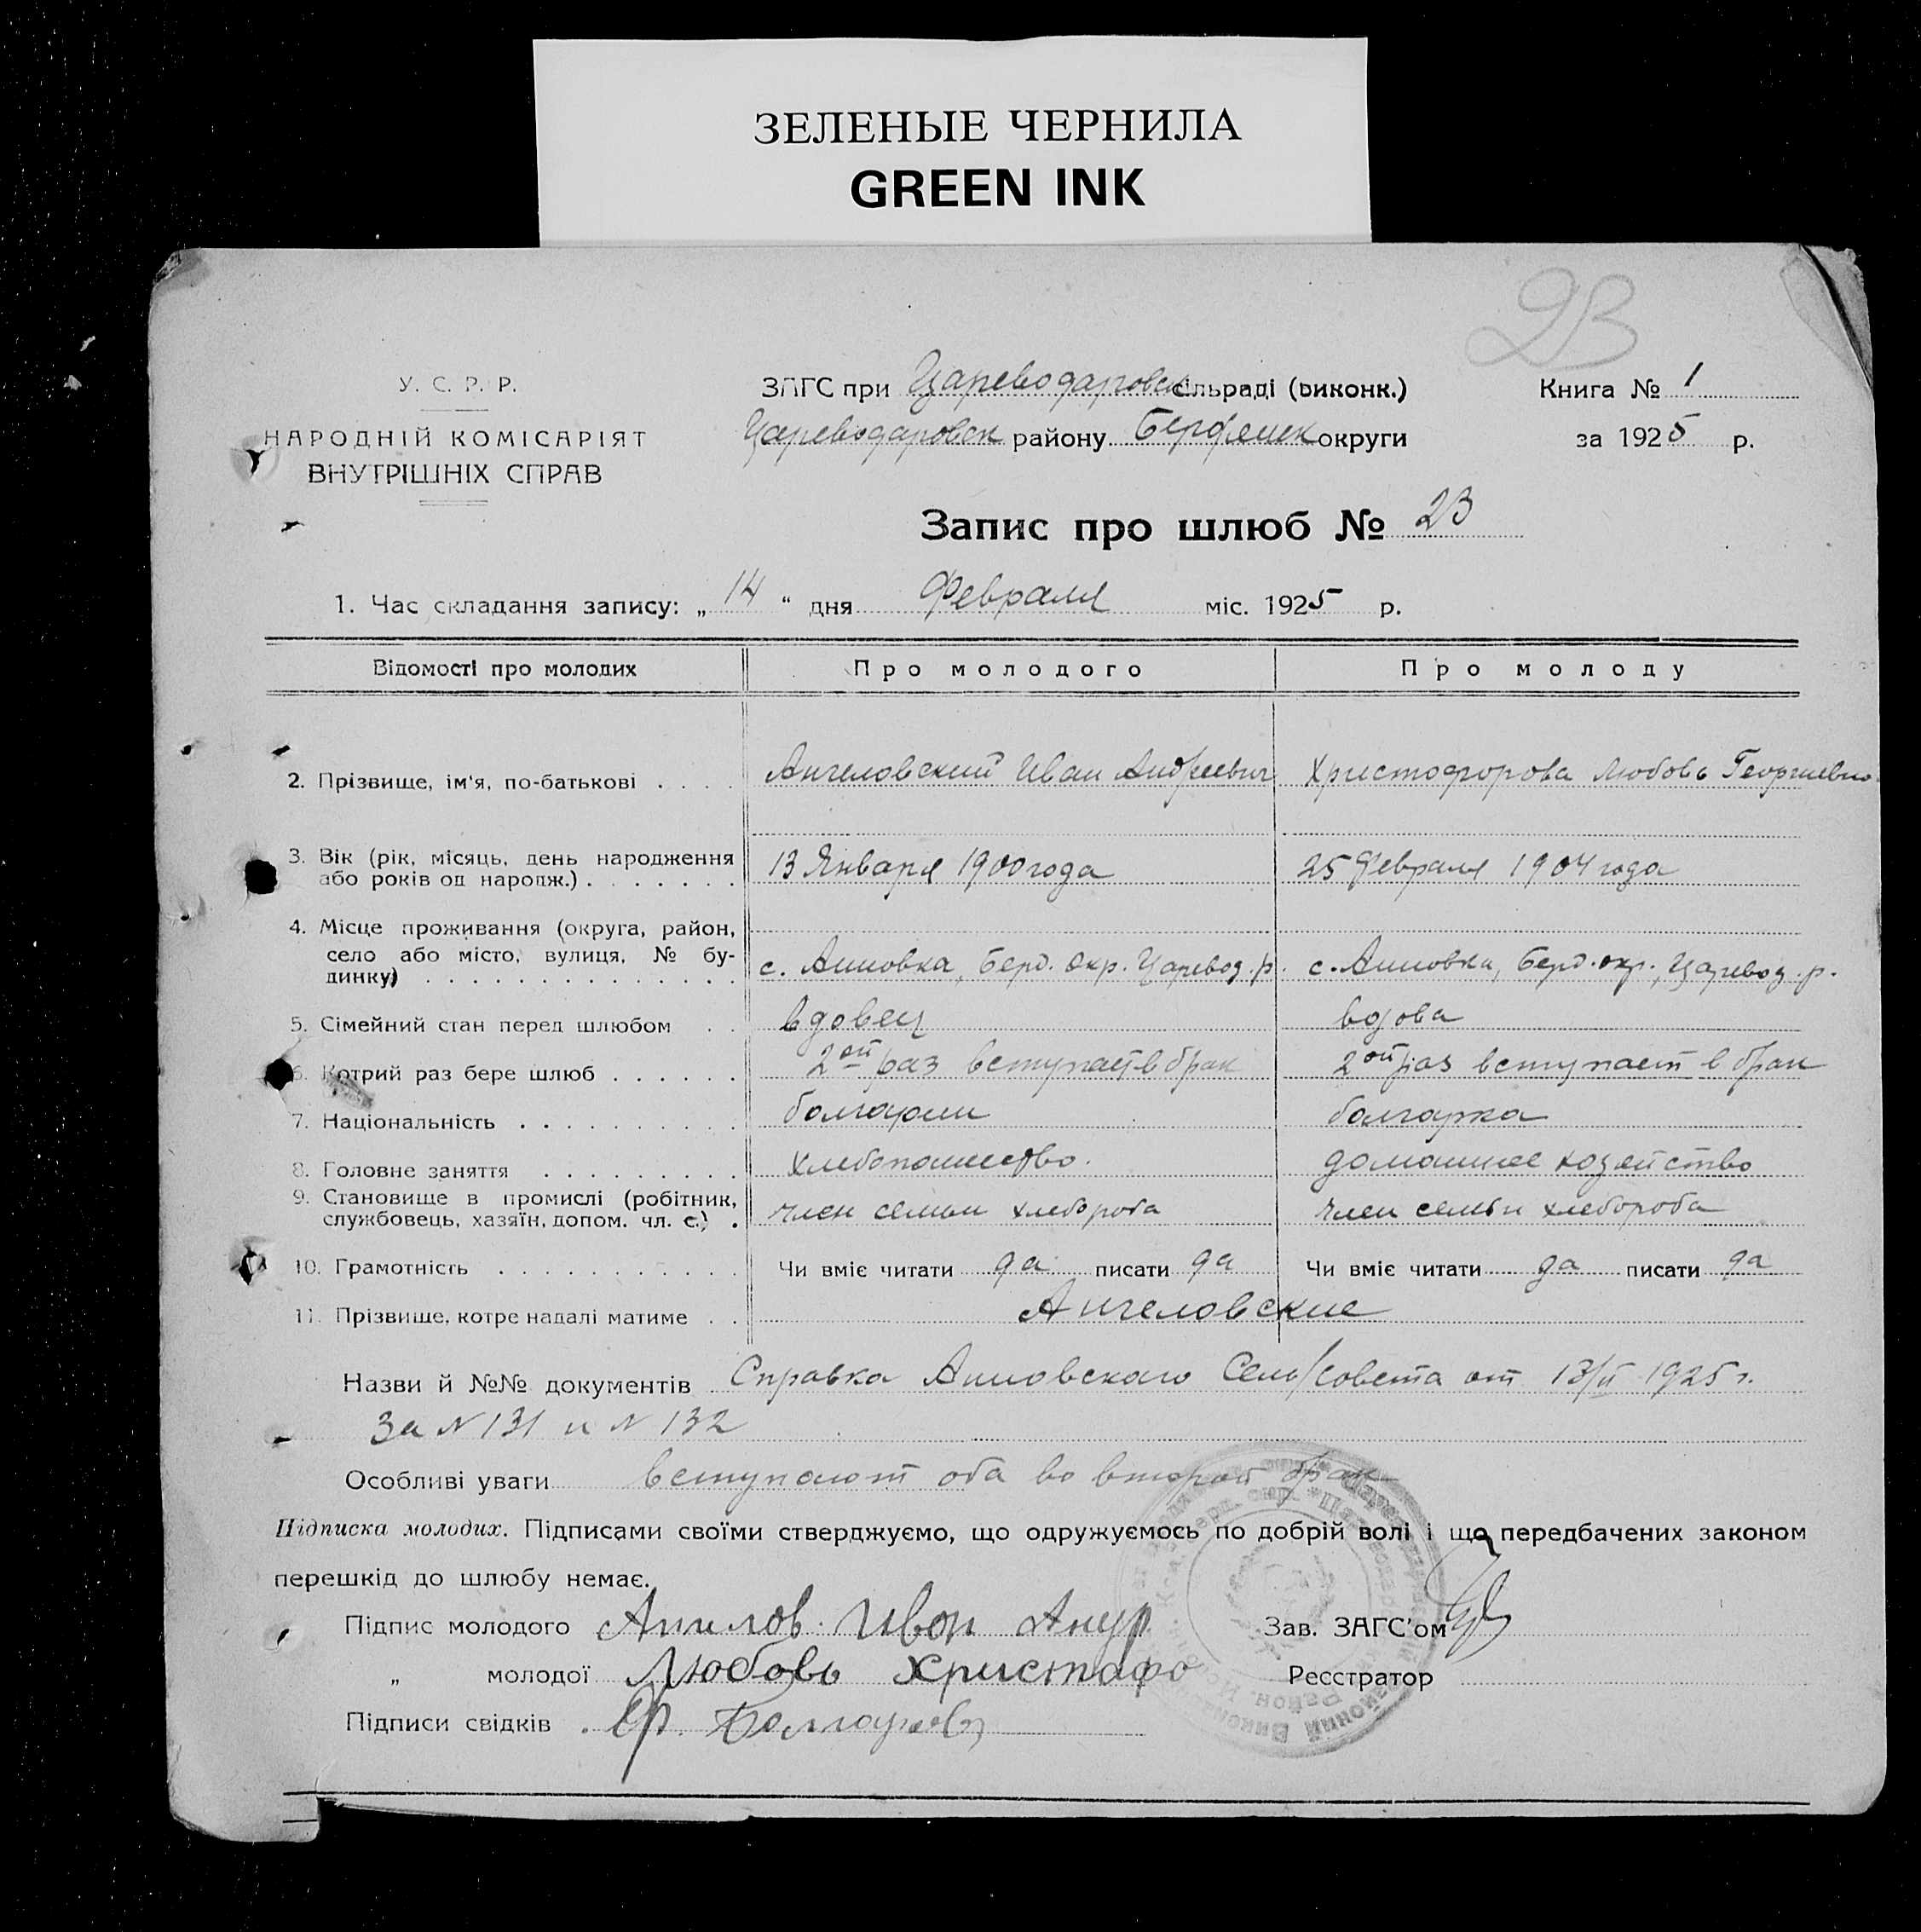 ЗЕЛЕНЫЕ ЧЕРНИЛА
GREEN INK
23
У. С. Р. Р.
НАРОДНІЙ КОМІСАРІЯТ
ВНУТРІШНІХ СПРАВ
ЗАГС при Цареводаровск сільраді (виконк.)
Цареводаровск району Бердянск округи
Книга № 1
за 1925 р.
Запис про шлюб № 23
1. Час складання запису: „ 14 “ дня Февраля міс. 1925 р.
Відомості про молодих Про молодого Про молоду
2. Прізвище, ім'я, по-батькові . . . . Ангеловский Иван Андреевич Христофорова Любовь Георгиевна
3. Вік (рік, місяць, день народження
або років од народж.) . . . . . . . 13 Января 1900 года 25 Февраля 1904 года
4. Місце проживання (округа, район,
село або місто, вулиця, № бу-
динку) . . . . . . . . . . . . . . с. Анновка, Берд. Окр. Царевод. р. с. Анновка, Берд. окр., Царевод. р.
5. Сімейний стан перед шлюбом . . вдовец вдова
6. Котрий раз бере шлюб . . . . . . 2ой раз вступает в брак 2ой раз вступает в брак
7. Національність . . . . . . . . . . болгарин болгарка
8. Головне заняття . . . . . . . . . Хлебопашество. домашнее хозяйство
9. Становище в промислі (робітник,
службовець, хазяїн, допом. чл. с.) . член семьи хлебороба член семьи хлебороба
10. Грамотність . . . . . . . . . . . Чи вміє читати да писати да Чи вміє читати да писати да
11. Прізвище, котре надалі матиме . . Ангеловские
Назви й №№ документів Справка Анновскаго Сель/совета от 13/II 1925 г.
За N 131 и N 132
Особливі уваги вступают оба во второй брак
Підписка молодих. Підписами своїми стверджуємо, що одружуємось по добрій волі і що передбачених законом
перешкід до шлюбу немає.
Підпис молодого Ангелов Иван Андр Зав. ЗАГС'ом
„ молодої Любовь Христофо Реєстратор
Підписи свідків .